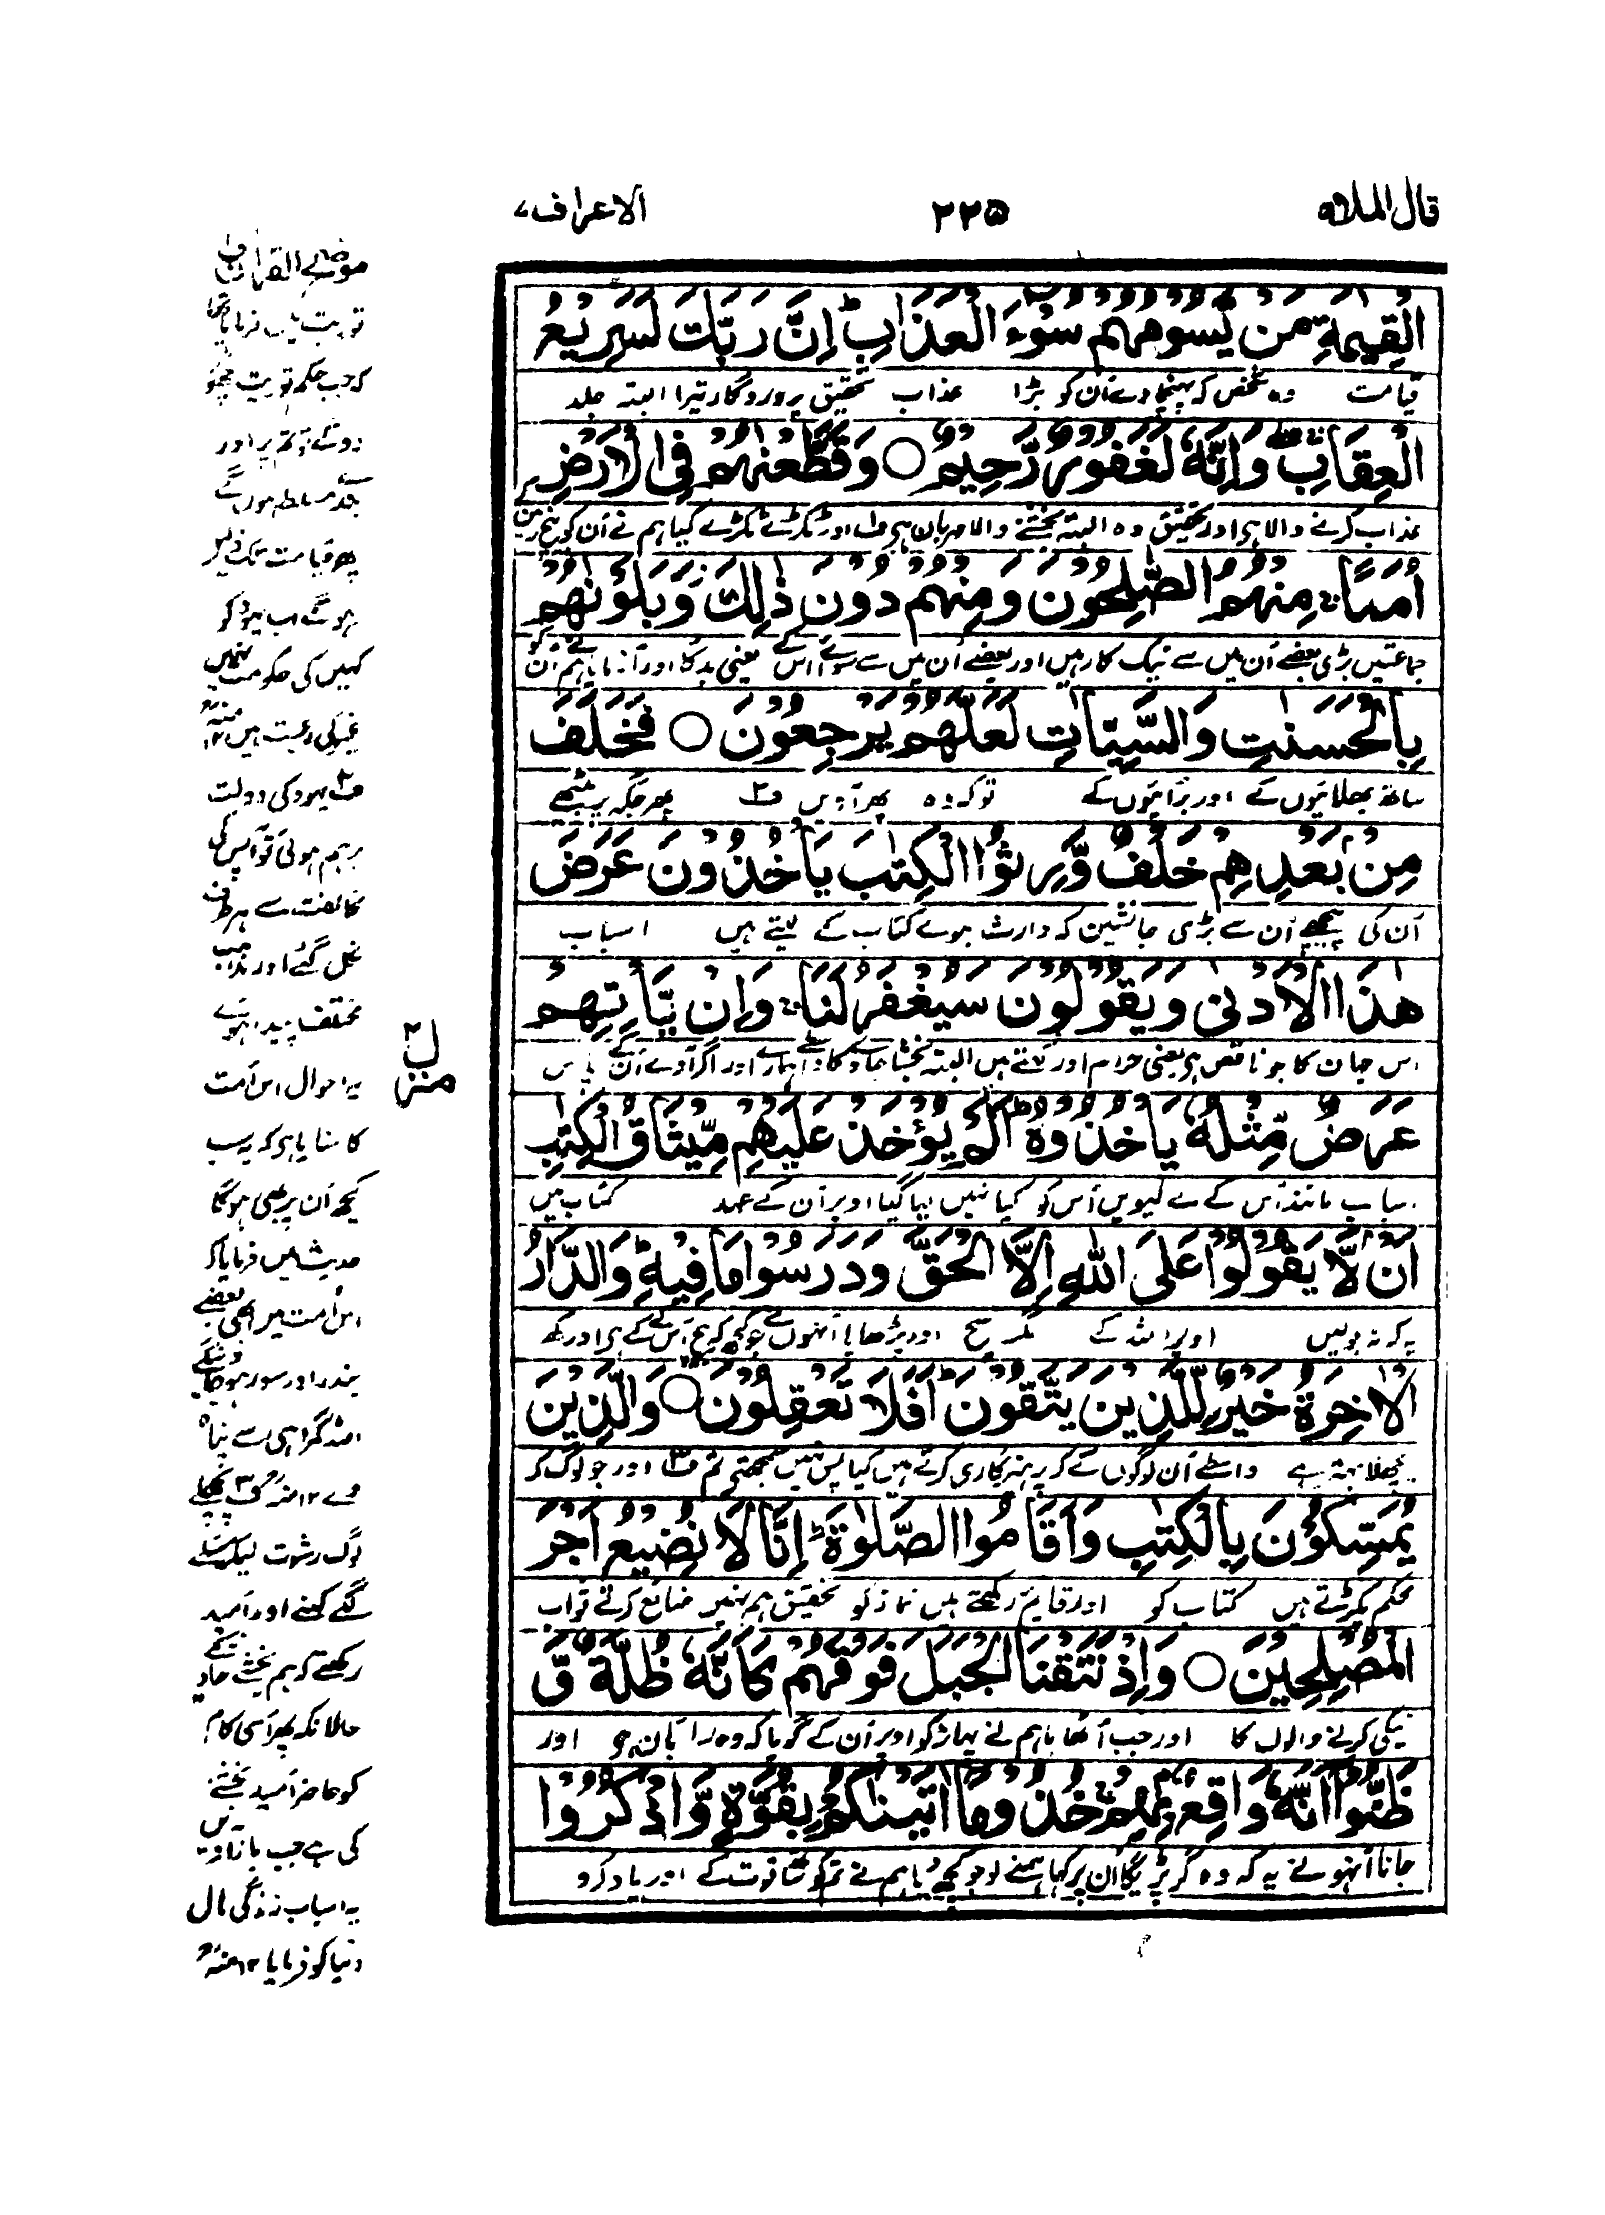 قال الملا۹
۲۲۵
الاعراف۷
الْقِيٰمَةِ مَنْ يَّسُوْمُهُمْ سُوْٓءَ الْعَذَابِ ؕ اِنَّ رَبَّكَ لَسَرِيْعُ
قیامت وہ شخص کہ پہنچاوے اُن کو بڑا عذاب تحقیق پروردگار تیرا البتہ جلد
الْعِقَابِ ۖۚ وَاِنَّهٗ لَغَفُوْرٌ رَّحِيْمٌ ○ وَقَطَّعْنٰهُمْ فِى الْاَرْضِ
عذاب کرنے والا ہی اور تحقیق وہ البتہ بخشنے والا مہربان ہی ف۱ اور ٹکڑے ٹکڑے کیا ہم نے اُن کو بیچ زمین کے
اُمَمًا ۚ مِنْهُمُ الصّٰلِحُوْنَ وَمِنْهُمْ دُوْنَ ذٰلِكَ ۫ وَبَلَوْنٰهُمْ
جماعتیں بڑی بعضے اُن میں سے نیک کار ہیں اور بعضے اُن میں سے سوائے اس کے یعنی بدکار اور آزمایا ہم نے اُن کو
بِالْحَسَنٰتِ وَالسَّيِّاٰتِ لَعَلَّهُمْ يَرْجِعُوْنَ ○ فَخَلَفَ
ساتھ بھلائیوں کے اور برائیوں کے توکہ وہ پھر آویں ف۲ پھر جگہ پر بیٹھے
مِنْۢ بَعْدِهِمْ خَلْفٌ وَّرِثُوا الْكِتٰبَ يَاْخُذُوْنَ عَرَضَ
اُن کی پیچھے اُن سے بڑی جانشین کہ وارث ہوے کتاب کے لیتے ہیں اسباب
هٰذَا الْاَدْنٰى وَيَقُوْلُوْنَ سَيُغْفَرُ لَنَا ۚ وَاِنْ يَّاْتِهِمْ
اس جہان کا جو ناقص ہی یعنی حرام اور کہتے ہیں البتہ بخشا جاویگا واسطے ہمارے اور اگر آوے اُن کے پاس
عَرَضٌ مِّثْلُهٗ يَاْخُذُوْهُ ؕ اَلَمْ يُؤْخَذْ عَلَيْهِمْ مِّيْثَاقُ الْكِتٰبِ
اسباب مانند اُس کے لے لیویں اُس کو کیا نہیں لیا گیا اوپر اُن کے عہد کتاب میں
اَنْ لَّا يَقُوْلُوْا عَلَى اللّٰهِ اِلَّا الْحَقَّ وَدَرَسُوْا مَا فِيْهِ ؕ وَالدَّارُ
یہ کہ نہ بولیں اوپر اللہ کے مگر سچ اور پڑھا ہا اُنہوں نے جو کچھ کہ بیچ اُس کے ہی اور گھر
الْاٰخِرَةُ خَيْرٌ لِّلَّذِيْنَ يَتَّقُوْنَ ؕ اَفَلَا تَعْقِلُوْنَ ○ وَالَّذِيْنَ
پچھلا بہتر ہے واسطے اُن لوگوں کے کہ پرہیزگاری کرتے ہیں کیا پس نہیں سمجھتے تم ف۳ اور جو لوگ کہ
يُمَسِّكُوْنَ بِالْكِتٰبِ وَاَقَامُوا الصَّلٰوةَ ؕ اِنَّا لَا نُضِيْعُ اَجْرَ
محکم پکڑتے ہیں کتاب کو اور قایم رکھتے ہیں نماز کو تحقیق ہم نہیں ضائع کرتے ثواب
الْمُصْلِحِيْنَ ○ وَاِذْ نَتَقْنَا الْجَبَلَ فَوْقَهُمْ كَاَنَّهٗ ظُلَّةٌ وَّ
نیکی کرنے والوں کا اور جب اُٹھایا ہم نے پہاڑ کو اوپر اُن کے گویا کہ وہ سایبان ہی اور
ظَنُّوْٓا اَنَّهٗ وَاقِعٌۢ بِهِمْ ۚ خُذُوْا مَآ اٰتَيْنٰكُمْ بِقُوَّةٍ وَّاذْكُرُوْا
جانا اُنہوں نے یہ کہ وہ گر پڑیگا اُن پر کہا ہمنے لو جو کچھ دیا ہم نے تم کو ساتھ قوت کے اور یاد کرو
منزل۲
موضح القرآن
ف۱ توریت میں فرمایا تھا
کہ جب حکم توریت چھوڑ
دوگے تو تم پر اور
بندے مسلط ہوں گے
پھر قیامت تک ذلیل
ہوگے اب یہود کو
کہیں کی حکومت نہیں
غیر کی رعیت ہیں ۱۲ منہؒ
ف۲ یہود کی دولت
برہم ہوئی تو آپس کی
مخالفت سے ہر طرف
نکل گئے اور مذہب
مختلف پیدا ہوئے
یہ احوال اس اُمت
کا سنایا ہی کہ یہ سب
کچھ اُن پر بھی ہوگا
حدیث میں فرمایا کہ
اس اُمت میں بھی بعضے
بندر اور سور ہو جاوینگے
اللہ گمراہی سے پناہ
دے ۱۲ منہؒ ف۳ پچھلے
لوگ رشوت لیکر مسئلے
لگے کہنے اور اُمید
رکھتے کہ ہم بخشے جاوینگے
حالانکہ پھر اُسی کام
کو حاضر اُمید بخشنے
کی ہے جب باز آویں
یہ اسباب زندگی مال
دنیا کو فرمایا ۱۲ منہؒ